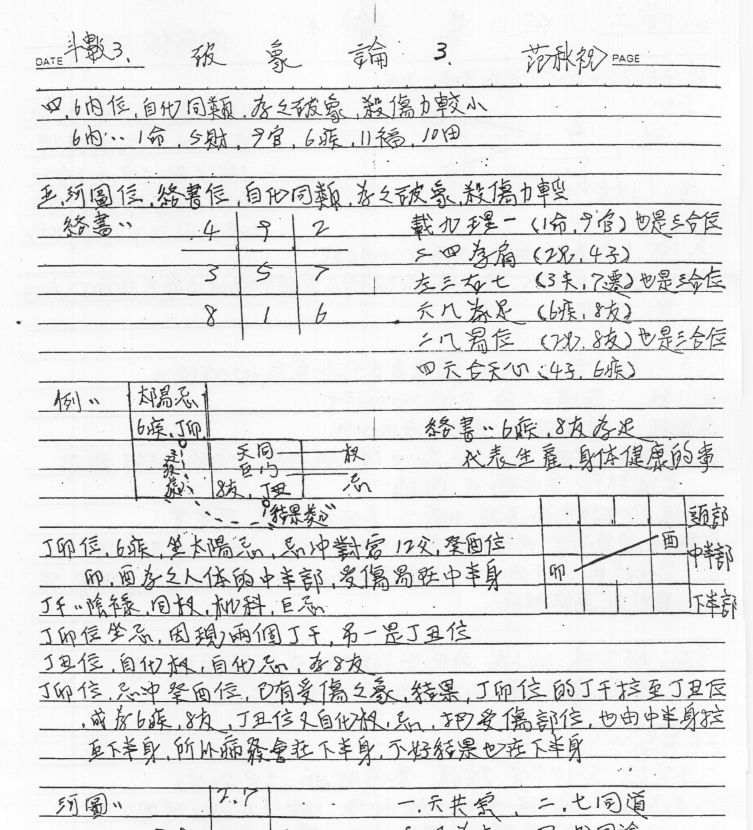 DATE 斗數3. 破象論 3. 范秋銘 PAGE
四,6內位,自化同類,為之破象,殺傷力較小
6內:1命,5財,9官,6疾,11福,10田
五,河圖位,絡書位,自化同類,為之破象,殺傷力輕些
絡書:
4 9 2
3 5 7
8 1 6
載九理一(1命,9官)也是三合位
二四為肩(2兄,4子)
左三右七(3夫,7遷)也是三合位
六八為足(6疾,8友)
二八易位(2兄,8友)也是三合位
四六合天心(4子,6疾)
例:
太陽忌
6疾,丁卯
天同 權
巨門 忌
8友,丁丑
結果
絡書:6疾,8友為足
代表生產,身体健康的事
頭部
酉 中半部
卯
下半部
丁卯位,6疾,坐太陽忌,忌冲對宮12父,癸酉位
卯,酉為之人体的中半部,受傷易在中半身
丁干:陰祿,同權,机科,巨忌
丁卯位坐忌,因現兩個丁干,另一是丁丑位
丁丑位,自化權,自化忌,為8友
丁卯位,忌冲癸酉位,已有受傷之象,結果,丁卯位的丁干拉至丁丑位
,或為6疾,8友,丁丑位又自化權,忌,把受傷部位,也由中半身拉
至下半身,所以病發會在下半身,不好結果也在下半身
河圖: 2.7 一.六共宗,二.七同道